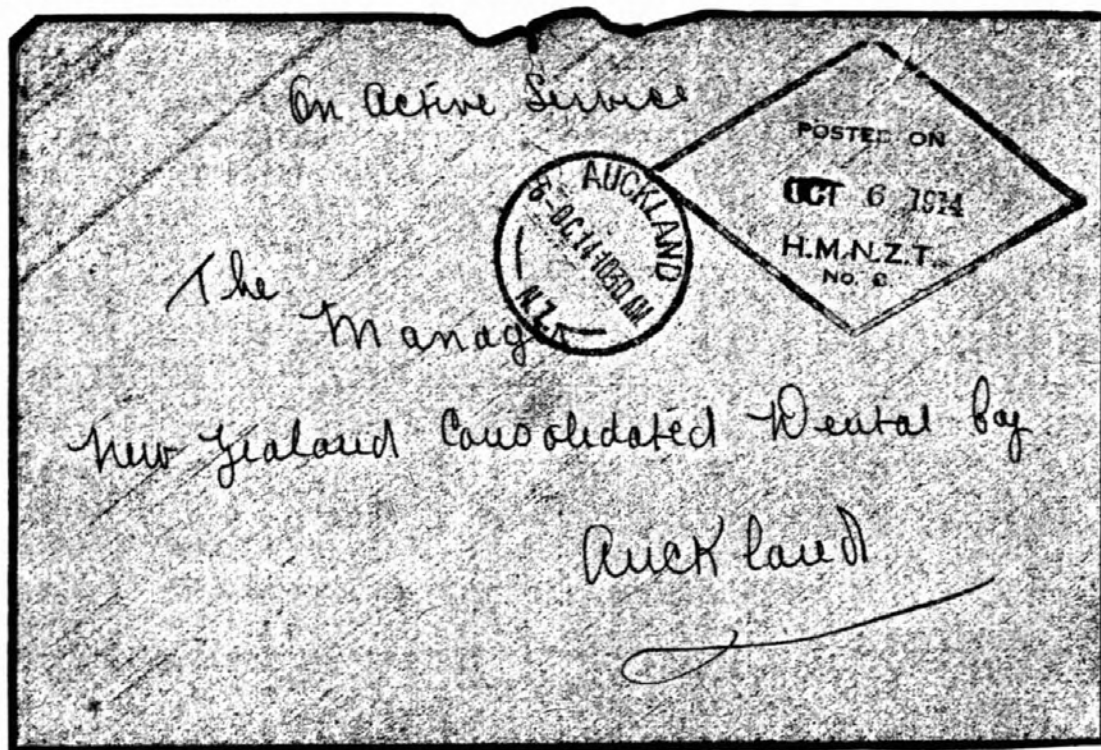 On Active Service
POSTED ON
OCT 6 1914
H.M.N.Z.T.
No.
AUCKLAND
-OC 14-1030 AM
N.Z.
The
Manager
New Zealand Consolidated Dental Coy
Auckland